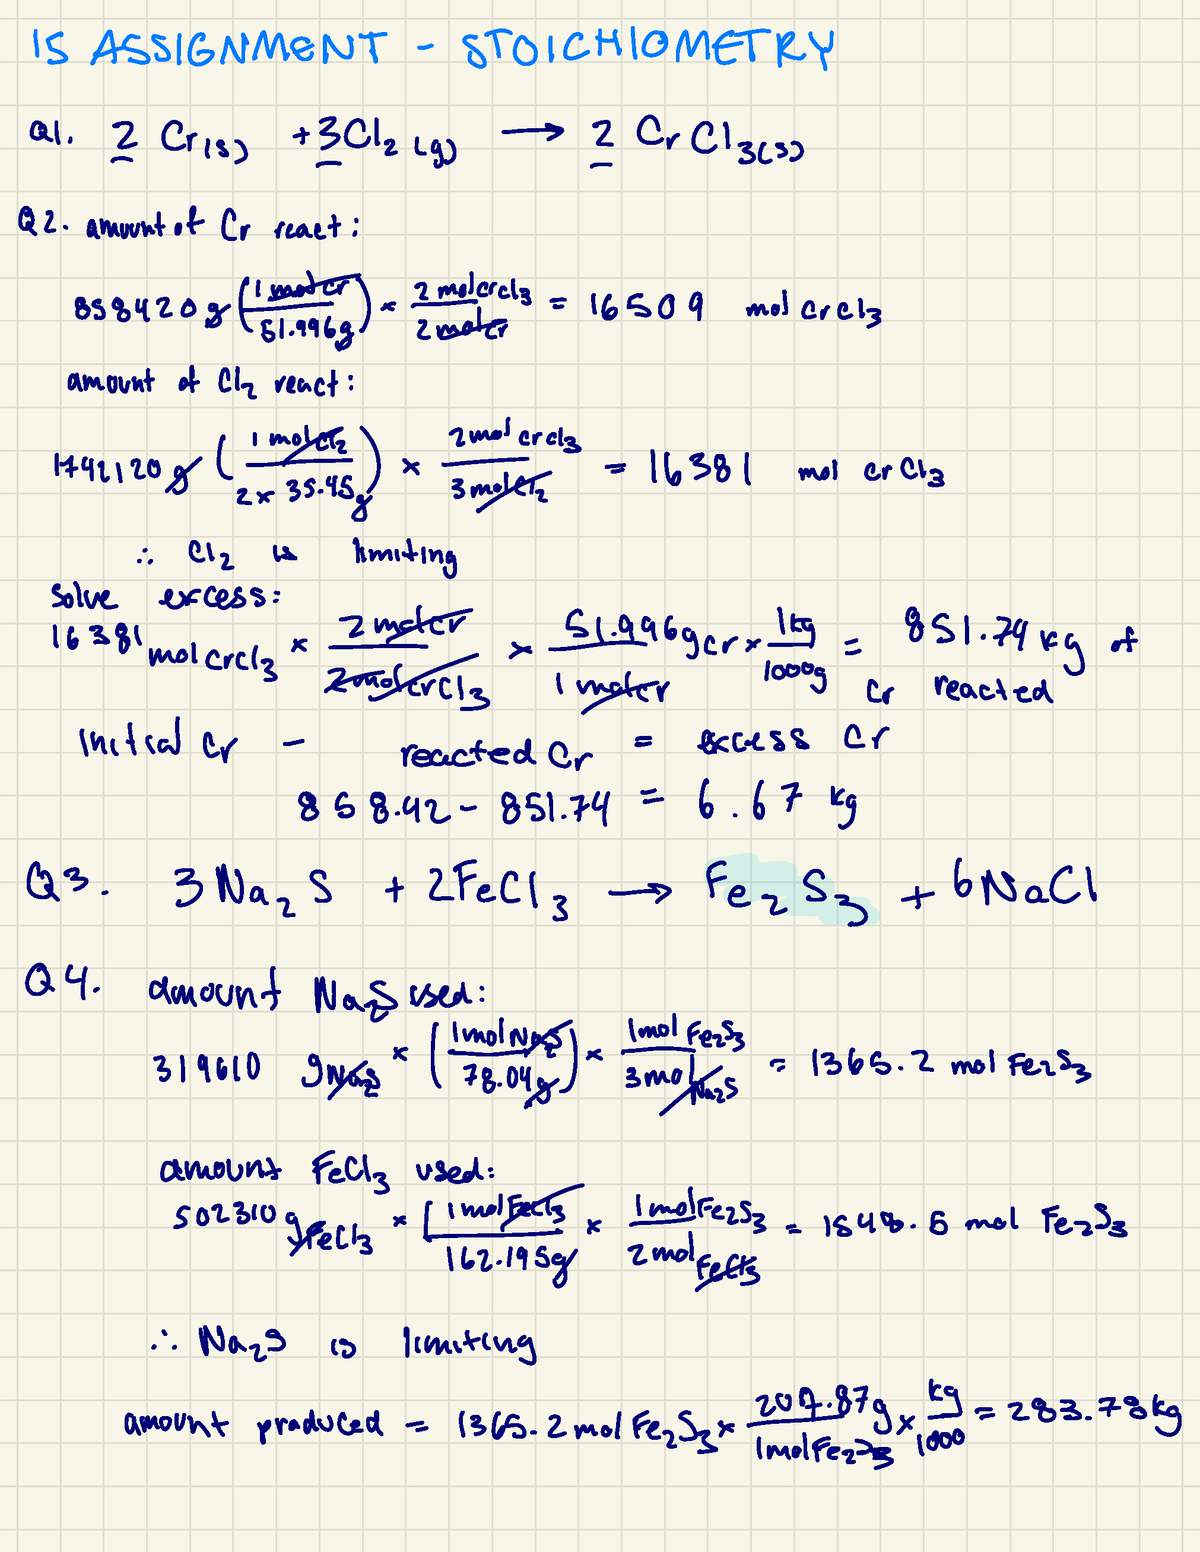 IS ASSIGNMENT - STOICHIOMETRY
Q1. 2 Cr(s) + 3Cl2 (g) → 2 CrCl3(s)
Q2. amount of Cr react:
858420 g (1 mol Cr / 51.996g) × 2 mol CrCl3 / 2 mol Cr = 16509 mol CrCl3
amount of Cl2 react:
1742120 g (1 mol Cl2 / 2 × 35.45g) × 2 mol CrCl3 / 3 mol Cl2 = 16381 mol CrCl3
∴ Cl2 is limiting
Solve excess:
16381 mol CrCl3 × 2 mol Cr / 2 mol CrCl3 × 51.996g Cr / 1 mol Cr × 1kg / 1000g = 851.74 kg of Cr reacted
initial Cr - reacted Cr = excess Cr
858.42 - 851.74 = 6.67 kg
Q3. 3Na2S + 2FeCl3 → Fe2S3 + 6NaCl
Q4. amount Na2S used:
319610 g Na2S × (1 mol Na2S / 78.04g) × 1 mol Fe2S3 / 3 mol Na2S = 1365.2 mol Fe2S3
amount FeCl3 used:
502310 g FeCl3 × [1 mol FeCl3 / 162.195g × 1 mol Fe2S3 / 2 mol FeCl3 = 1548.5 mol Fe2S3
∴ Na2S is limiting
amount produced = 1365.2 mol Fe2S3 × 207.87g / 1 mol Fe2S3 × kg / 1000 = 283.78 kg